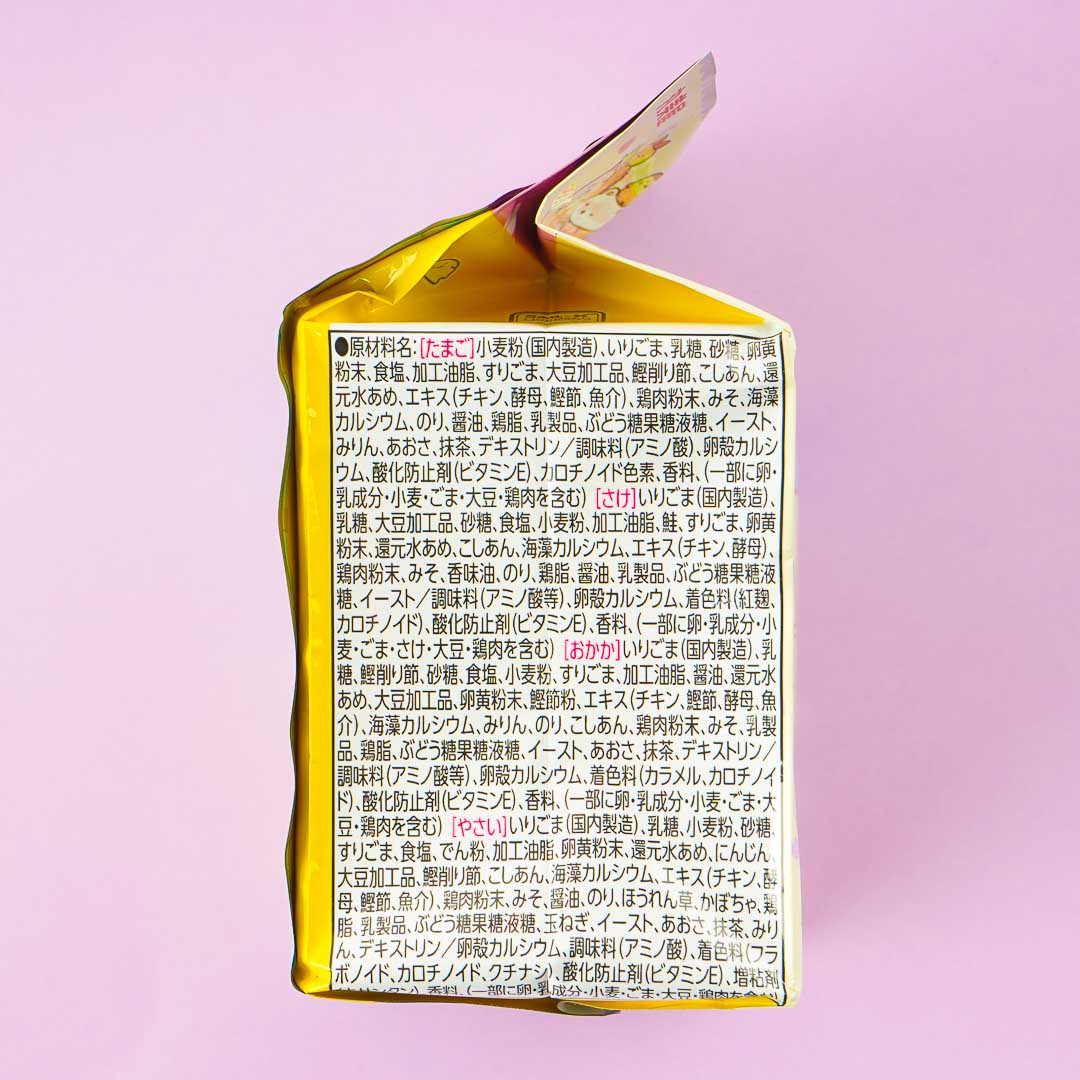 ●原材料名:[たまご]小麦粉(国内製造)、いりごま、乳糖、砂糖、卵黄
粉末、食塩、加工油脂、すりごま、大豆加工品、鰹削り節、こしあん、還
元水あめ、エキス(チキン、酵母、鰹節、魚介)、鶏肉粉末、みそ、海藻
カルシウム、のり、醤油、鶏脂、乳製品、ぶどう糖果糖液糖、イースト、
みりん、あおさ、抹茶、デキストリン/調味料(アミノ酸)、卵殻カルシ
ウム、酸化防止剤(ビタミンE)、カロチノイド色素、香料、(一部に卵・
乳成分・小麦・ごま・大豆・鶏肉を含む) [さけ]いりごま(国内製造)、
乳糖、大豆加工品、砂糖、食塩、小麦粉、加工油脂、鮭、すりごま、卵黄
粉末、還元水あめ、こしあん、海藻カルシウム、エキス(チキン、酵母)、
鶏肉粉末、みそ、香味油、のり、鶏脂、醤油、乳製品、ぶどう糖果糖液
糖、イースト/調味料(アミノ酸等)、卵殻カルシウム、着色料(紅麹、
カロチノイド)、酸化防止剤(ビタミンE)、香料、(一部に卵・乳成分・小
麦・ごま・さけ・大豆・鶏肉を含む) [おかか]いりごま(国内製造)、乳
糖、鰹削り節、砂糖、食塩、小麦粉、すりごま、加工油脂、醤油、還元水
あめ、大豆加工品、卵黄粉末、鰹節粉、エキス(チキン、鰹節、酵母、魚
介)、海藻カルシウム、みりん、のり、こしあん、鶏肉粉末、みそ、乳製
品、鶏脂、ぶどう糖果糖液糖、イースト、あおさ、抹茶、デキストリン/
調味料(アミノ酸等)、卵殻カルシウム、着色料(カラメル、カロチノイ
ド)、酸化防止剤(ビタミンE)、香料、(一部に卵・乳成分・小麦・ごま・大
豆・鶏肉を含む) [やさい]いりごま(国内製造)、乳糖、小麦粉、砂糖、
すりごま、食塩、でん粉、加工油脂、卵黄粉末、還元水あめ、にんじん、
大豆加工品、鰹削り節、こしあん、海藻カルシウム、エキス(チキン、酵
母、鰹節、魚介)、鶏肉粉末、みそ、醤油、のり、ほうれん草、かぼちゃ、鶏
脂、乳製品、ぶどう糖果糖液糖、玉ねぎ、イースト、あおさ、抹茶、みり
ん、デキストリン/卵殻カルシウム、調味料(アミノ酸)、着色料(フラ
ボノイド、カロチノイド、クチナシ)、酸化防止剤(ビタミンE)、増粘剤
香料、(一部に卵・乳成分・小麦・ごま・大豆・鶏肉を含む)